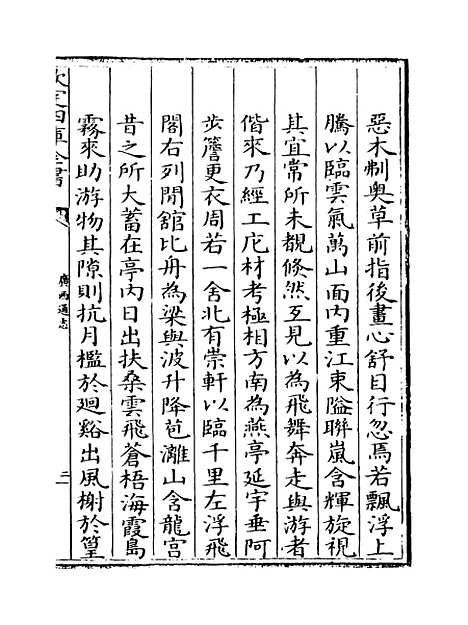 惡木制奥草前指後畫心舒目行忽焉若飄浮上
騰以臨雲氣萬山面内重江東隘聯嵐含輝旋視
其宜常所未覩倐然互見以為飛舞奔走與游者
偕來乃經工庀材考極相方南為燕亭延宇垂阿
歩簷更衣周若一舍北有崇軒以臨千里左浮飛
閣右列閒舘比舟為梁與波升降苞漓山含龍宫
昔之所大蓄在亭内日出扶桑雲飛蒼梧海霞島
霧來助游物其隙則抗月檻於廻谿出風榭於篁
欽定四庫全書
廣西通志